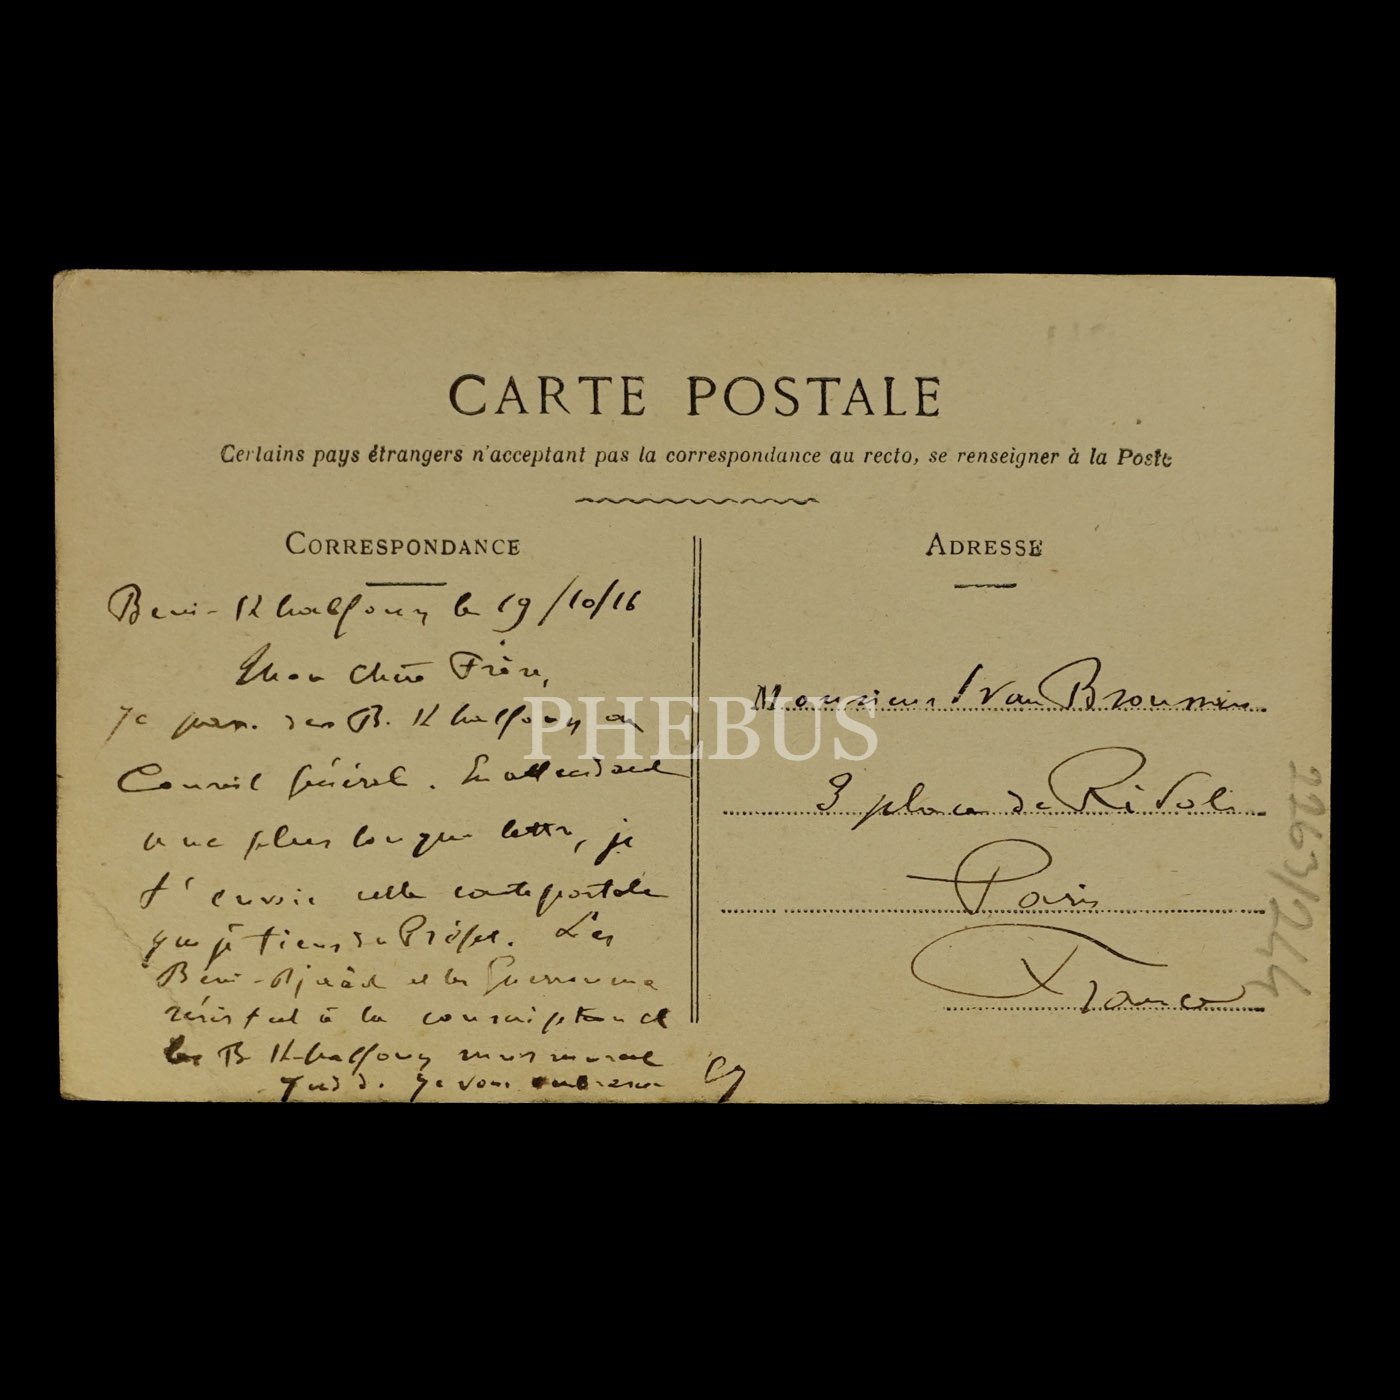 CARTE POSTALE
Certains pays étrangers n'acceptant pas la correspondance au recto, se renseigner à la Poste
CORRESPONDANCE
Beni-Khalfoun le 19/10/16
Mon cher Frère,
Je pars des B. Khalfoun au
Conseil Général. En attendant
une plus longue lettre, je
t'envoie cette carte postale
que je tiens du Préfet. Les
Beni-Djaâd et les Guerrouma
résistent à la conscription et
les B Khalfoun
Je vous embrasse
ADRESSE
Monsieur Ivan
3 place de Rivoli
Paris
France
PHEBUS
2263/244